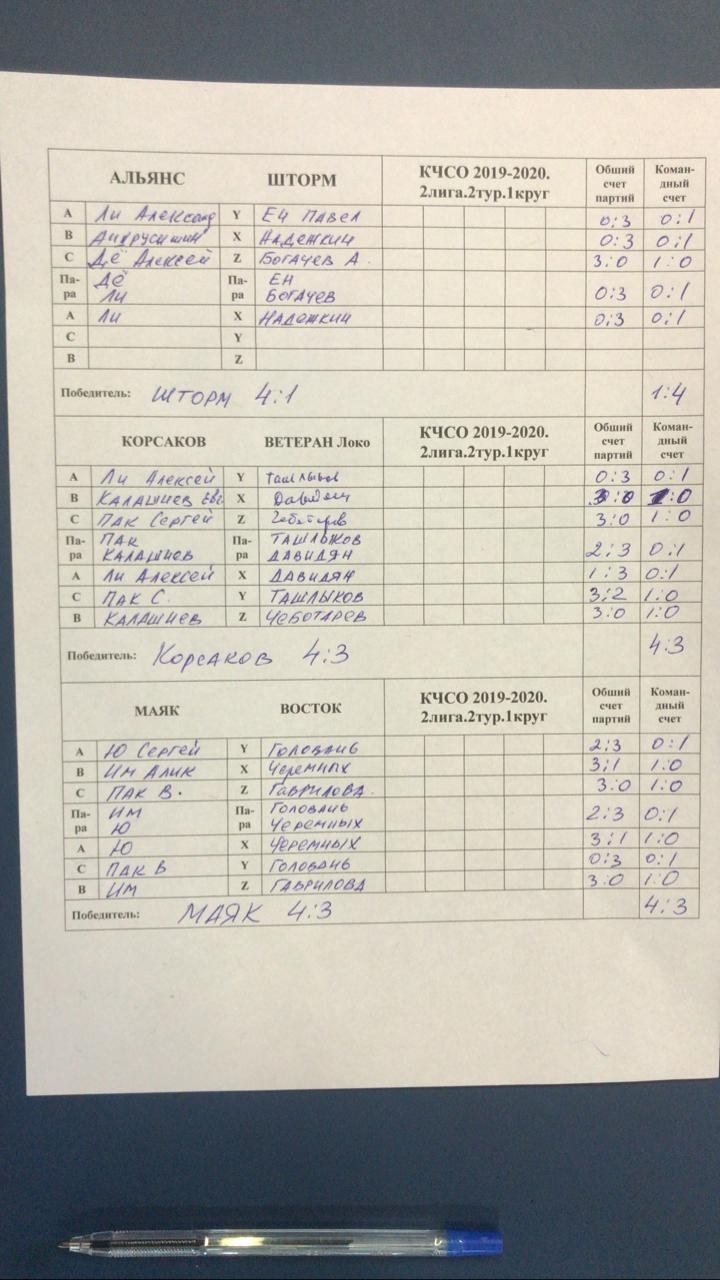 АЛЬЯНС ШТОРМ КЧСО 2019-2020. 2лига.2тур.1круг Обший счет партий Коман-дный счет
А Ли Александ Y ЕН ПАВЕЛ 0:3 0:1
В Андрусишин X НАДЕЖКИН 0:3 0:1
С ДЁ Алексей Z БОГАЧЕВ А. 3:0 1:0
Па-ра ДЁ ЛИ Па-ра ЕН БОГАЧЕВ 0:3 0:1
А ЛИ X НАДЕЖКИН 0:3 0:1
С Y
В Z
Победитель: ШТОРМ 4:1 1:4
КОРСАКОВ ВЕТЕРАН Локо КЧСО 2019-2020. 2лига.2тур.1круг Обший счет партий Коман-дный счет
А Ли Алексей Y Ташлыков 0:3 0:1
В КАЛАШНЕВ Евг X Давидян 3:0 1:0
С ПАК Сергей Z Чеботарев 3:0 1:0
Па-ра ПАК КАЛАШНЕВ Па-ра ТАШЛЫКОВ ДАВИДЯН 2:3 0:1
А Ли Алексей X ДАВИДЯН 1:3 0:1
С ПАК С. Y ТАШЛЫКОВ 3:2 1:0
В КАЛАШНЕВ Z ЧЕБОТАРЕВ 3:0 1:0
Победитель: Корсаков 4:3 4:3
МАЯК ВОСТОК КЧСО 2019-2020. 2лига.2тур.1круг Обший счет партий Коман-дный счет
А Ю Сергей Y Головань 2:3 0:1
В ИМ Алик X Черемных 3:1 1:0
С ПАК В. Z Гаврилова. 3:0 1:0
Па-ра ИМ Ю Па-ра Головань Черемных 2:3 0:1
А Ю X ЧЕРЕМНЫХ 3:1 1:0
С ПАК В Y Головань 0:3 0:1
В ИМ Z ГАВРИЛОВА 3:0 1:0
Победитель: МАЯК 4:3 4:3